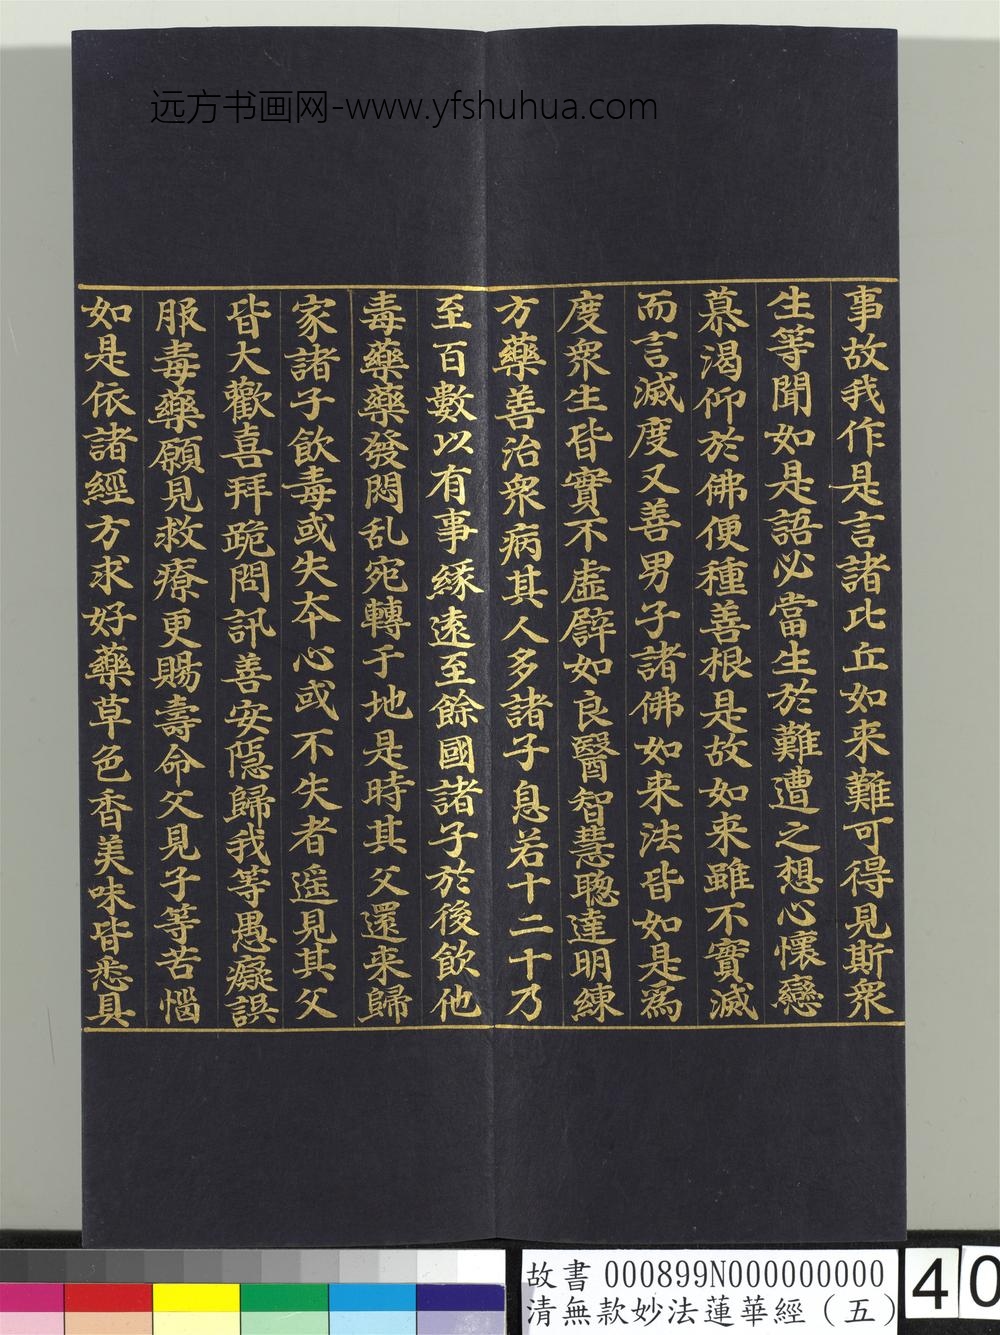 远方书画网-www.yfshuhua.com
事故我作是言諸比丘如来難可得見斯衆
生等聞如是語必當生於難遭之想心懷戀
慕渴仰於佛便種善根是故如来雖不實滅
而言滅度又善男子諸佛如来法皆如是爲
度衆生皆實不虛譬如良醫智慧聰達明練
方藥善治衆病其人多諸子息若十二十乃
至百數以有事緣遠至餘國諸子於後飲他
毒藥藥發悶乱宛轉于地是時其父還来歸
家諸子飲毒或失本心或不失者遥見其父
皆大歡喜拜跪問訊善安隱歸我等愚癡誤
服毒藥願見救療更賜壽命父見子等苦惱
如是依諸經方求好藥草色香美味皆悉具
故書 000899N000000000
清無款妙法蓮華經（五）
40